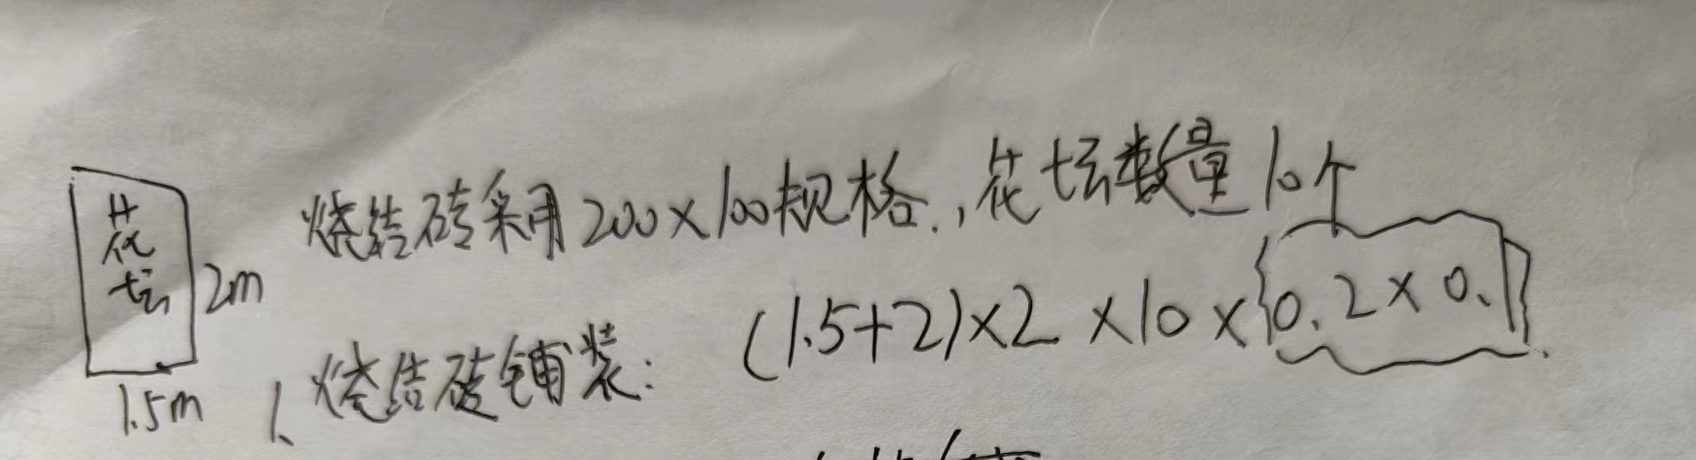 烧结砖采用200×100规格.,花坛数量10个
花坛
2m
1.5m
1、烧结砖铺装: (1.5+2)×2×10×{0.2×0.1}